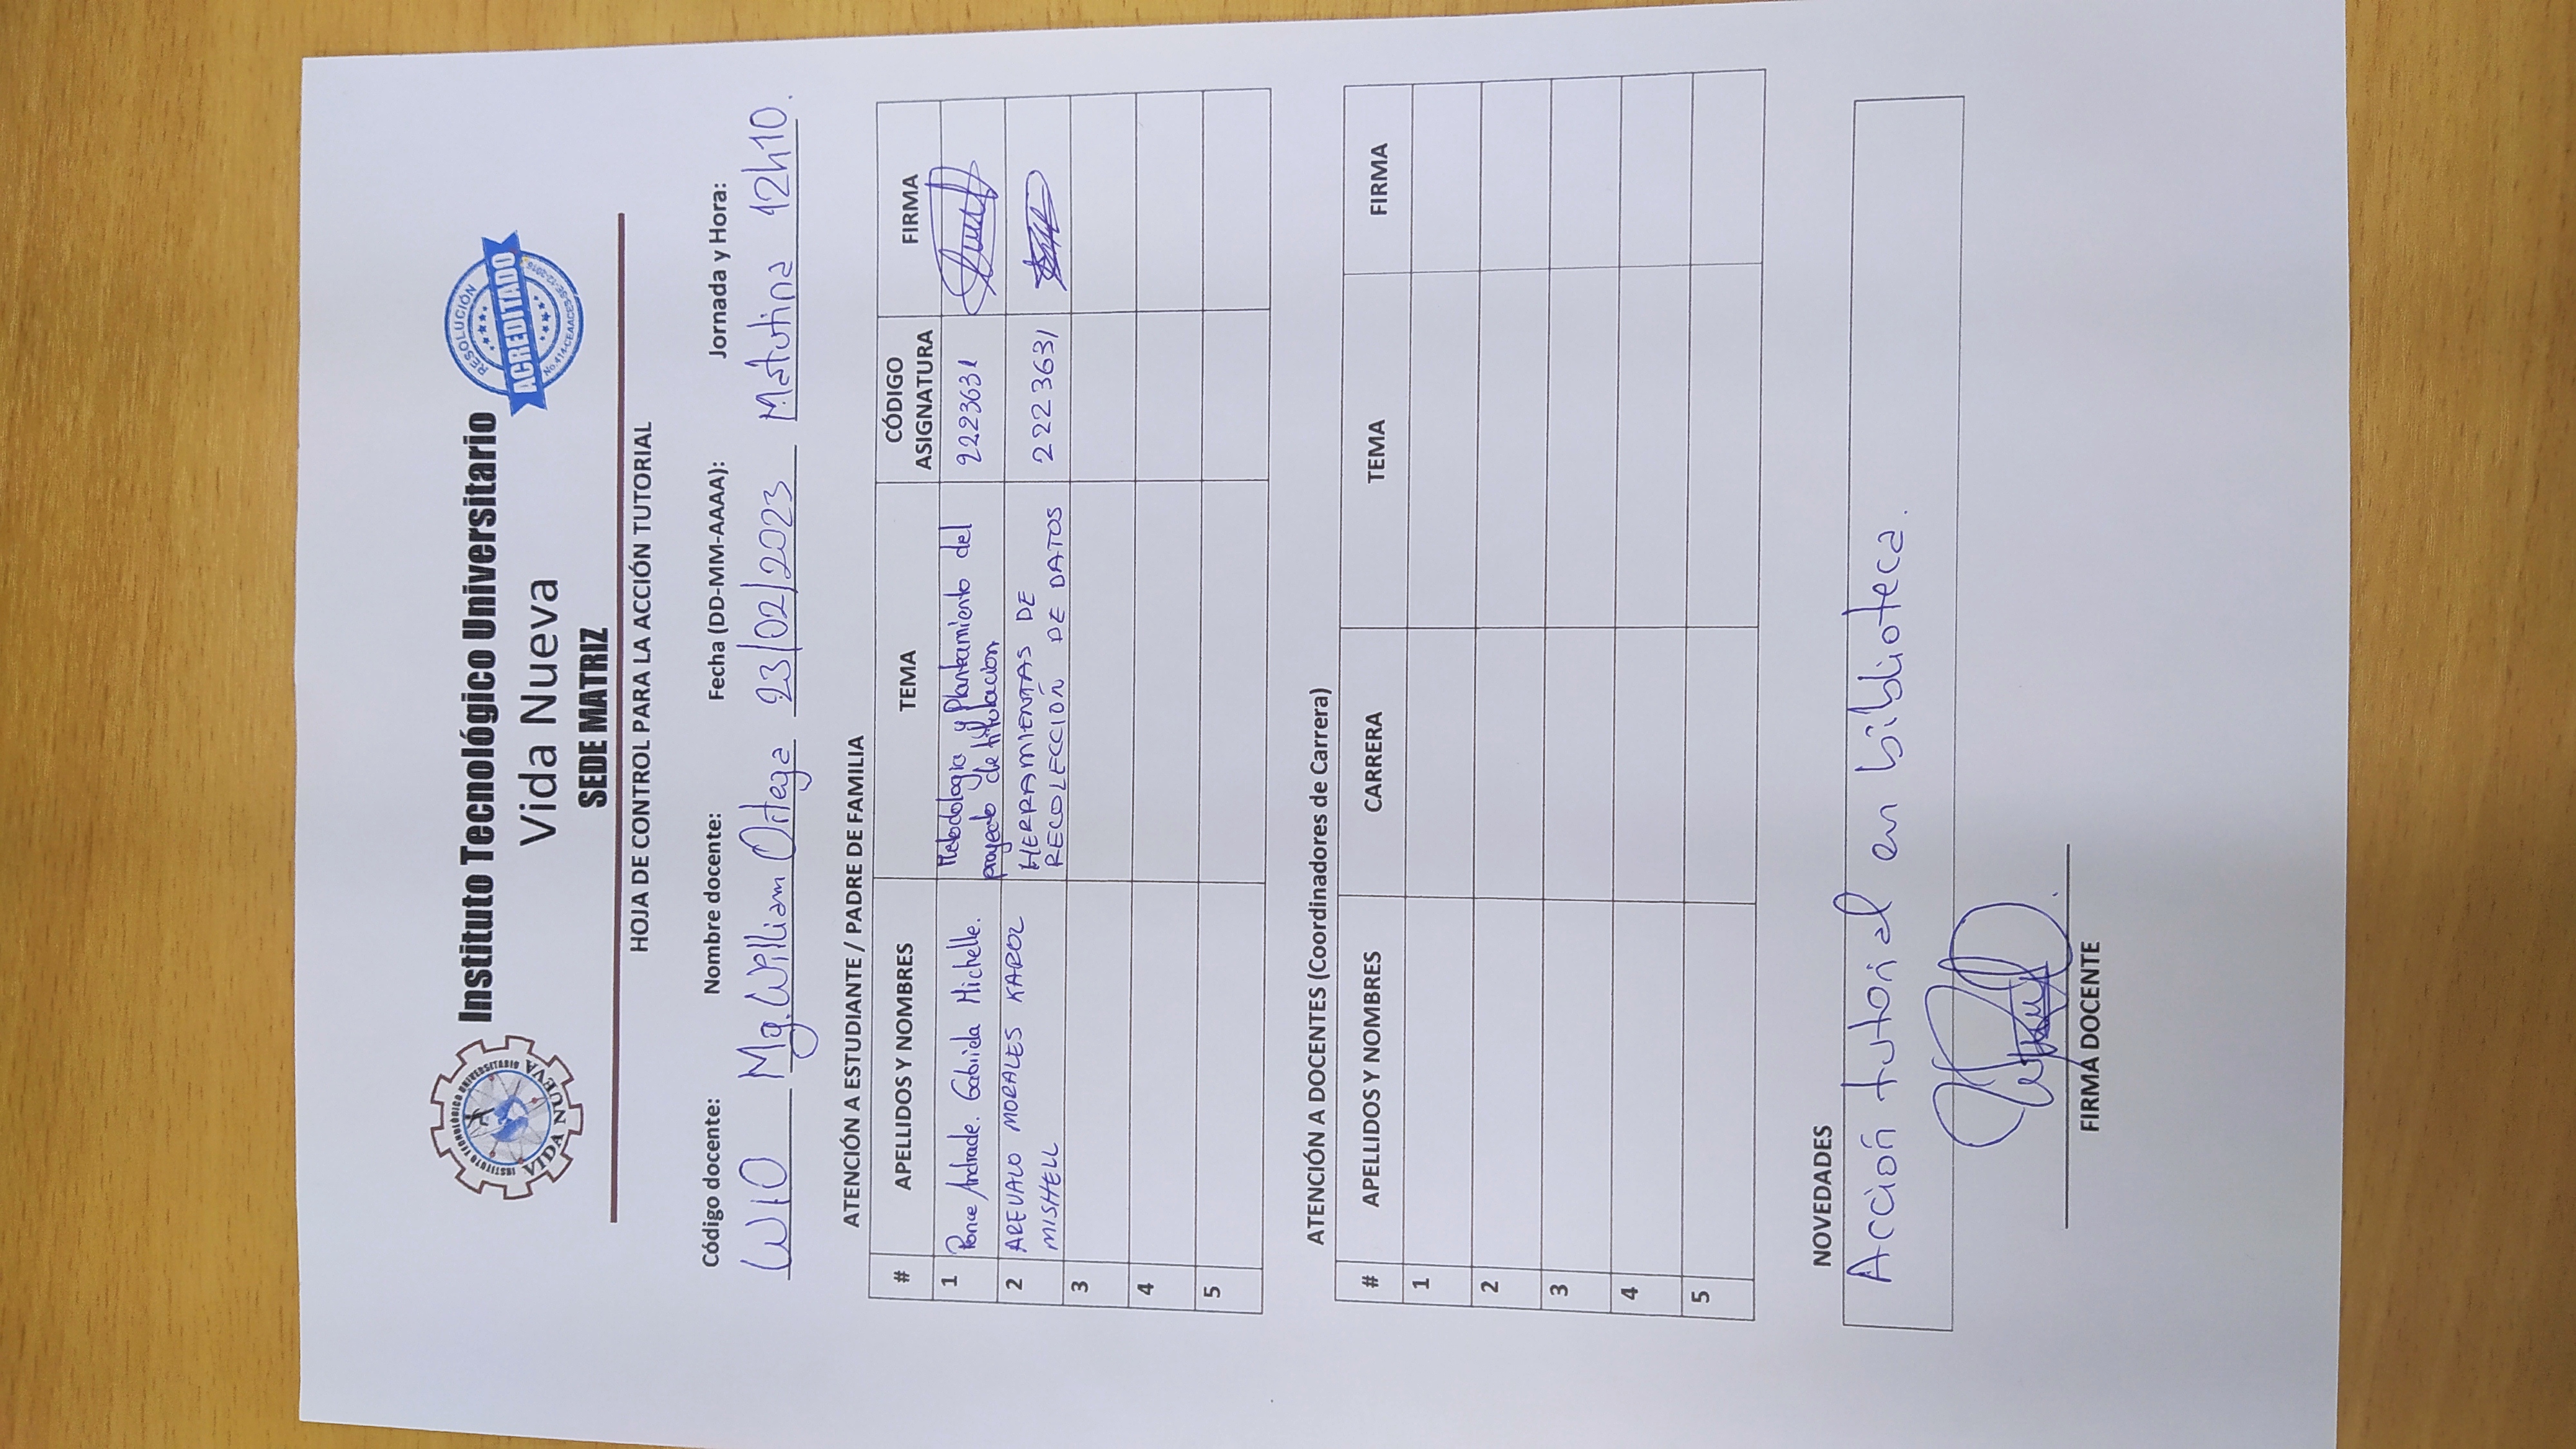 INSTITUTO TECNOLÓGICO UNIVERSITARIO
VIDA NUEVA
Instituto Tecnológico Universitario
Vida Nueva
SEDE MATRIZ
RESOLUCIÓN
ACREDITADO
No.414-CEAACES-SE-12-2016
HOJA DE CONTROL PARA LA ACCIÓN TUTORIAL
Código docente: Nombre docente: Fecha (DD-MM-AAAA): Jornada y Hora:
WIO Mg. William Ortega 23/02/2023 Matutina 12h10.
ATENCIÓN A ESTUDIANTE / PADRE DE FAMILIA
# APELLIDOS Y NOMBRES TEMA CÓDIGO ASIGNATURA FIRMA
1 Ponce Andrade. Gabriela Michelle. Metodologia y Planteamiento del proyecto de titulacion 2223631
2 AREVALO MORALES KAROL MISHELL HERRAMIENTAS DE RECOLECCIÓN DE DATOS 2223631
3
4
5
ATENCIÓN A DOCENTES (Coordinadores de Carrera)
# APELLIDOS Y NOMBRES CARRERA TEMA FIRMA
1
2
3
4
5
NOVEDADES
Acción tutorial en biblioteca.
FIRMA DOCENTE